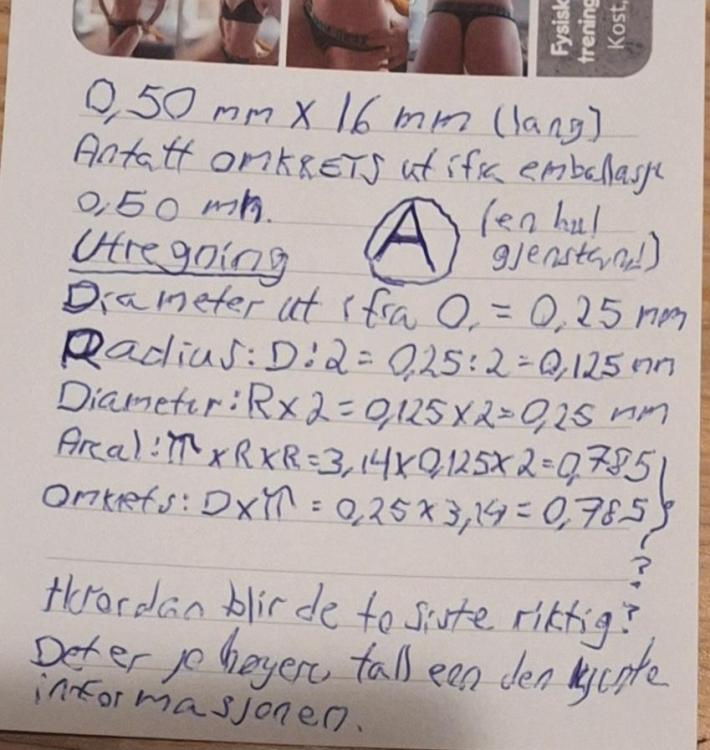 Fysisk
trening
Kost,
0,50 mm X 16 mm (lang)
Antatt OMKRETS ut ifra emballasje
0,50 mm.
A
(en hul
gjenstand)
Utregning
Diameter ut ifra O. = 0,25 mm
Radius: D:2 = 0,25:2=0,125 mm
Diameter: R x 2 = 0,125 x 2 = 0,25 mm
Areal: π x R x R = 3,14 x 0,125 x 2 = 0,785 }
Omkrets: D x π = 0,25 x 3,14 = 0,785 }
?
Hvordan blir de to siste riktig?
Det er jo høyere tall een den kjente
informasjonen.